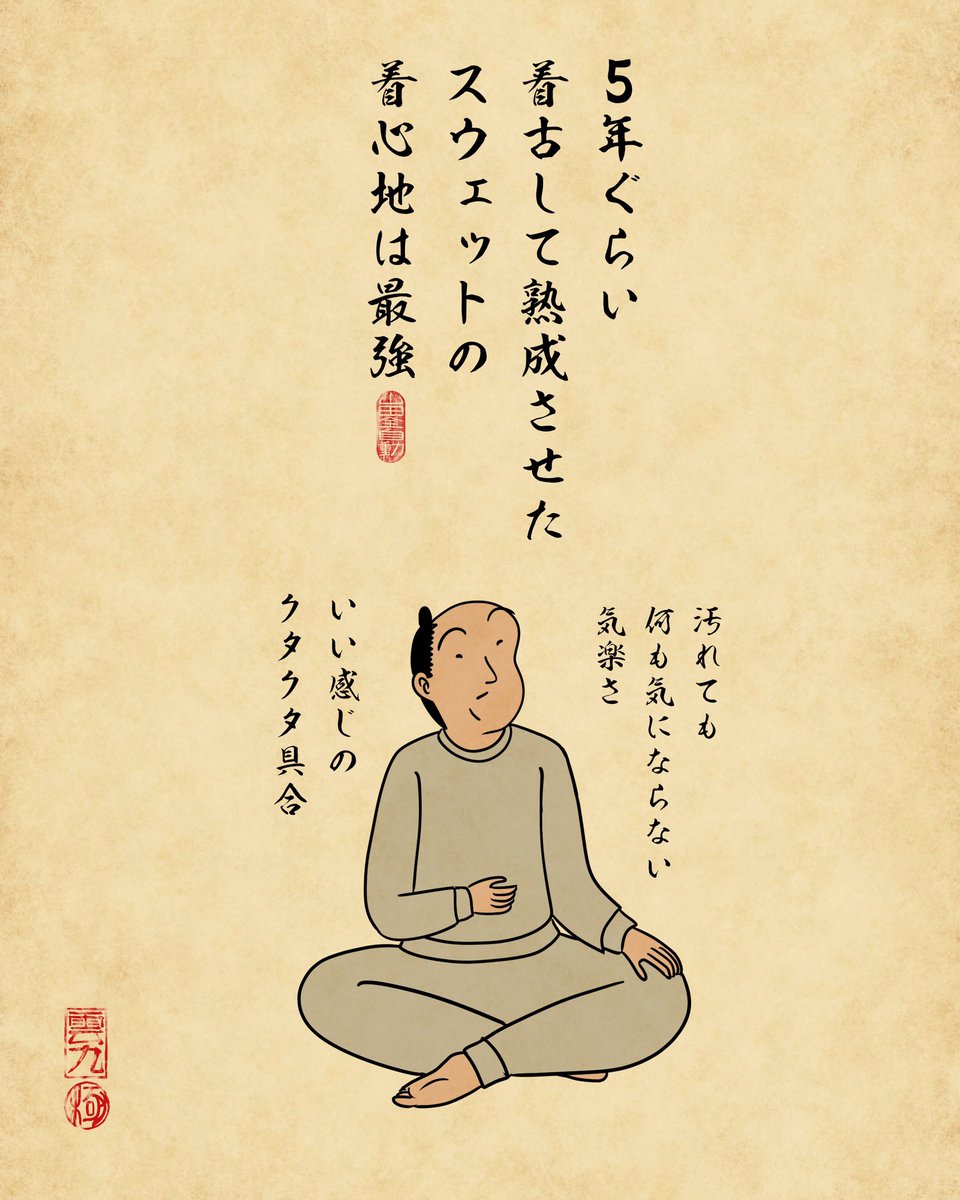 5年ぐらい
着古して熟成させた
スウェットの
着心地は最強
汚れても
何も気にならない
気楽さ
いい感じの
クタクタ具合